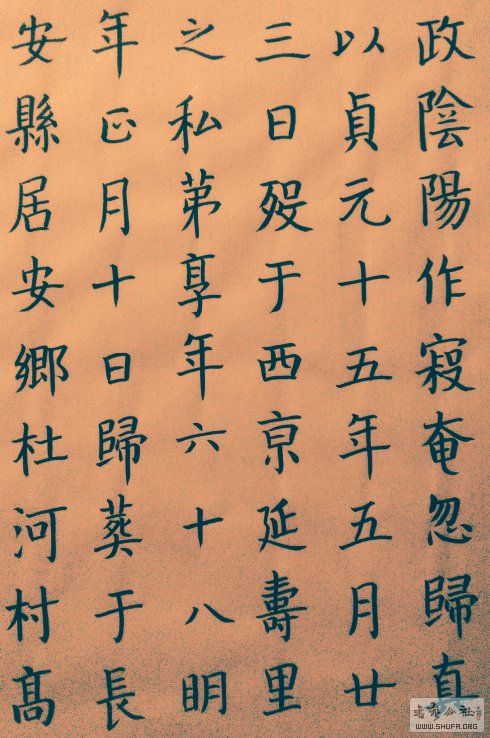 政陰陽作寇奄忽歸真
以貞元十五年五月廿
三日歿于西亰延壽里
之私第享年六十八明
年正月十日歸葬于長
安縣居安鄉杜河村髙
WWW.SHUFA.ORG